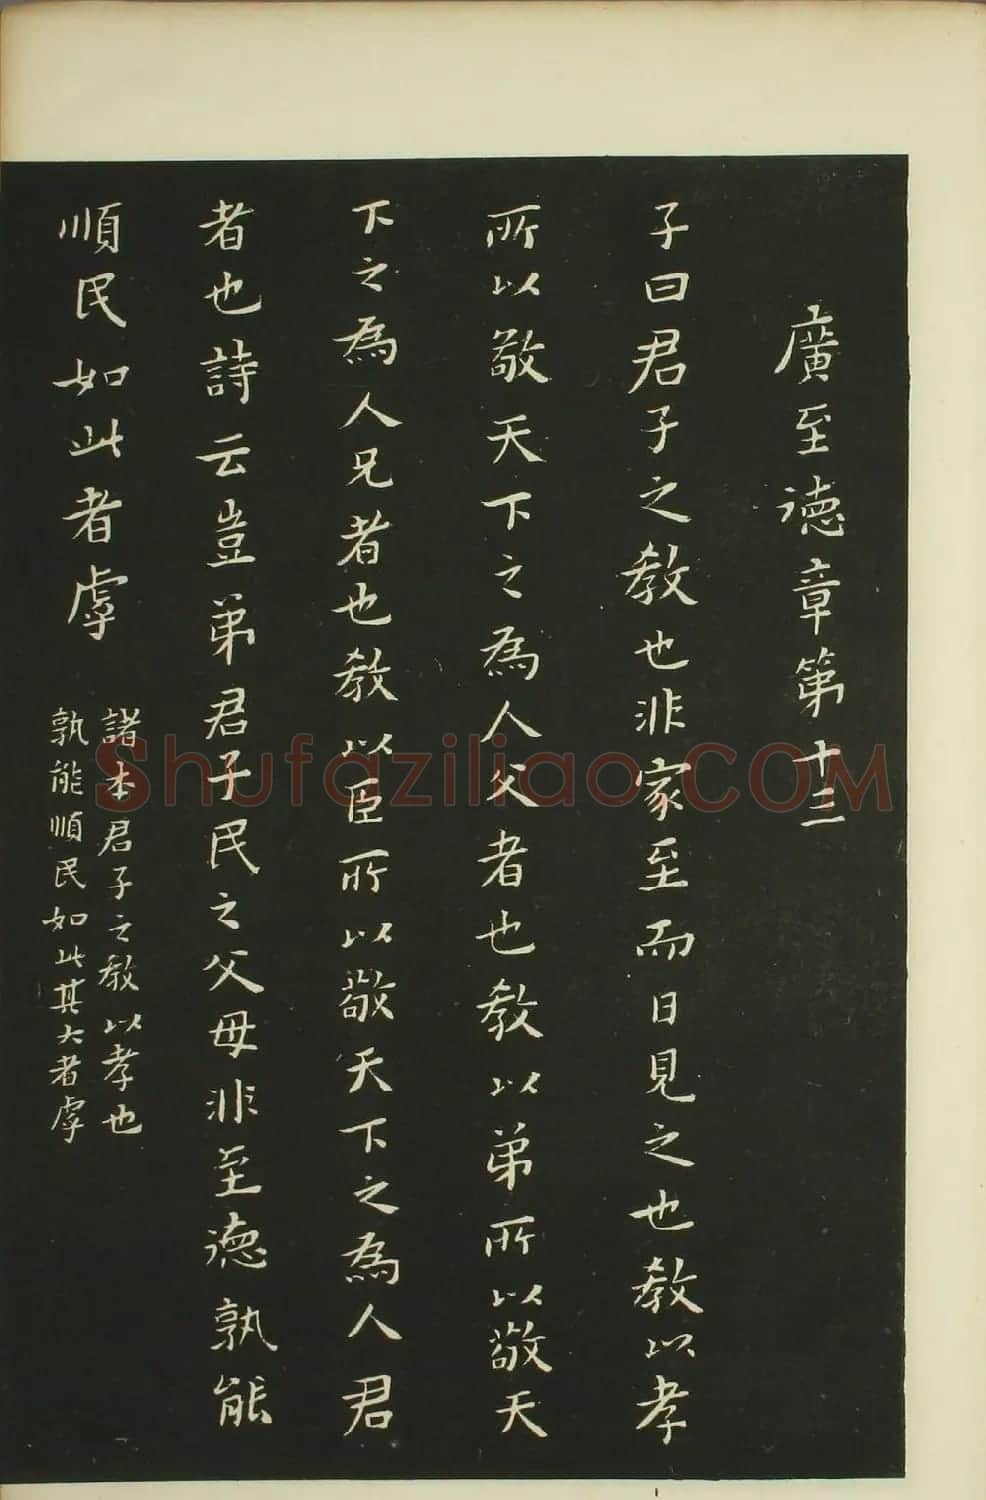 廣至德章第十三
子曰君子之教也非家至而日見之也教以孝
所以敬天下之為人父者也教以弟所以敬天
下之為人兄者也教以臣所以敬天下之為人君
者也詩云豈弟君子民之父母非至德孰能
順民如此者虖
諸本君子之教以孝也
孰能順民如此其大者虖
Shufaziliao.COM